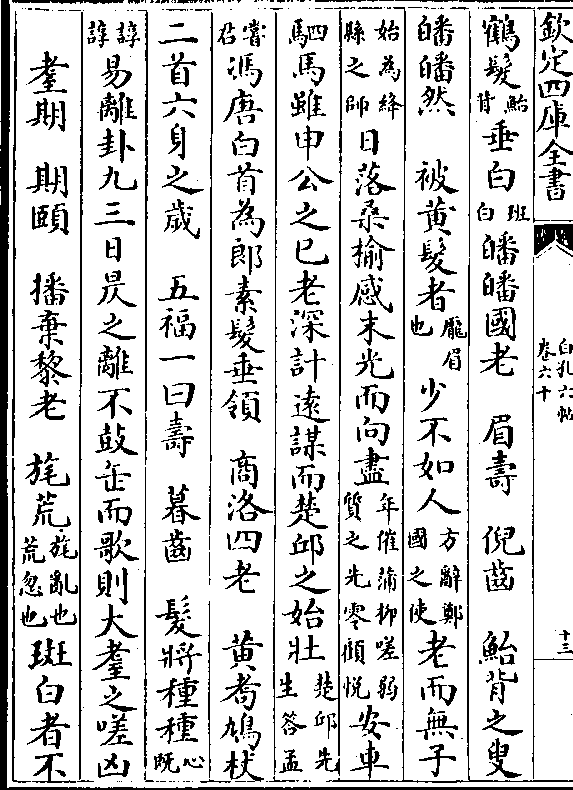 欽定四庫全書
白孔六帖
卷六十
十三
鶴髮鮐背垂白班白皤皤國老　眉壽　倪齒　鮐背之叟
皤皤然　被黄髮者龎眉也　少不如人方辭鄭國之使老而無子
始為絳縣之師日落桑榆感末光而向盡年催蒲柳嗟弱質之先零顧悅安車
駟馬雖申公之已老深計遠謀而楚邱之始壯楚邱先生答孟
嘗君馮唐白首為郎素髮垂領　商洛四老　黄耇鳩杖
二首六身之歲　五福一曰壽　暮齒　髮將種種心既
諄諄易離卦九三日昃之離不鼓缶而歌則大耋之嗟凶
耋期　期頤　播棄黎老　旄荒旄亂也荒忽也斑白者不